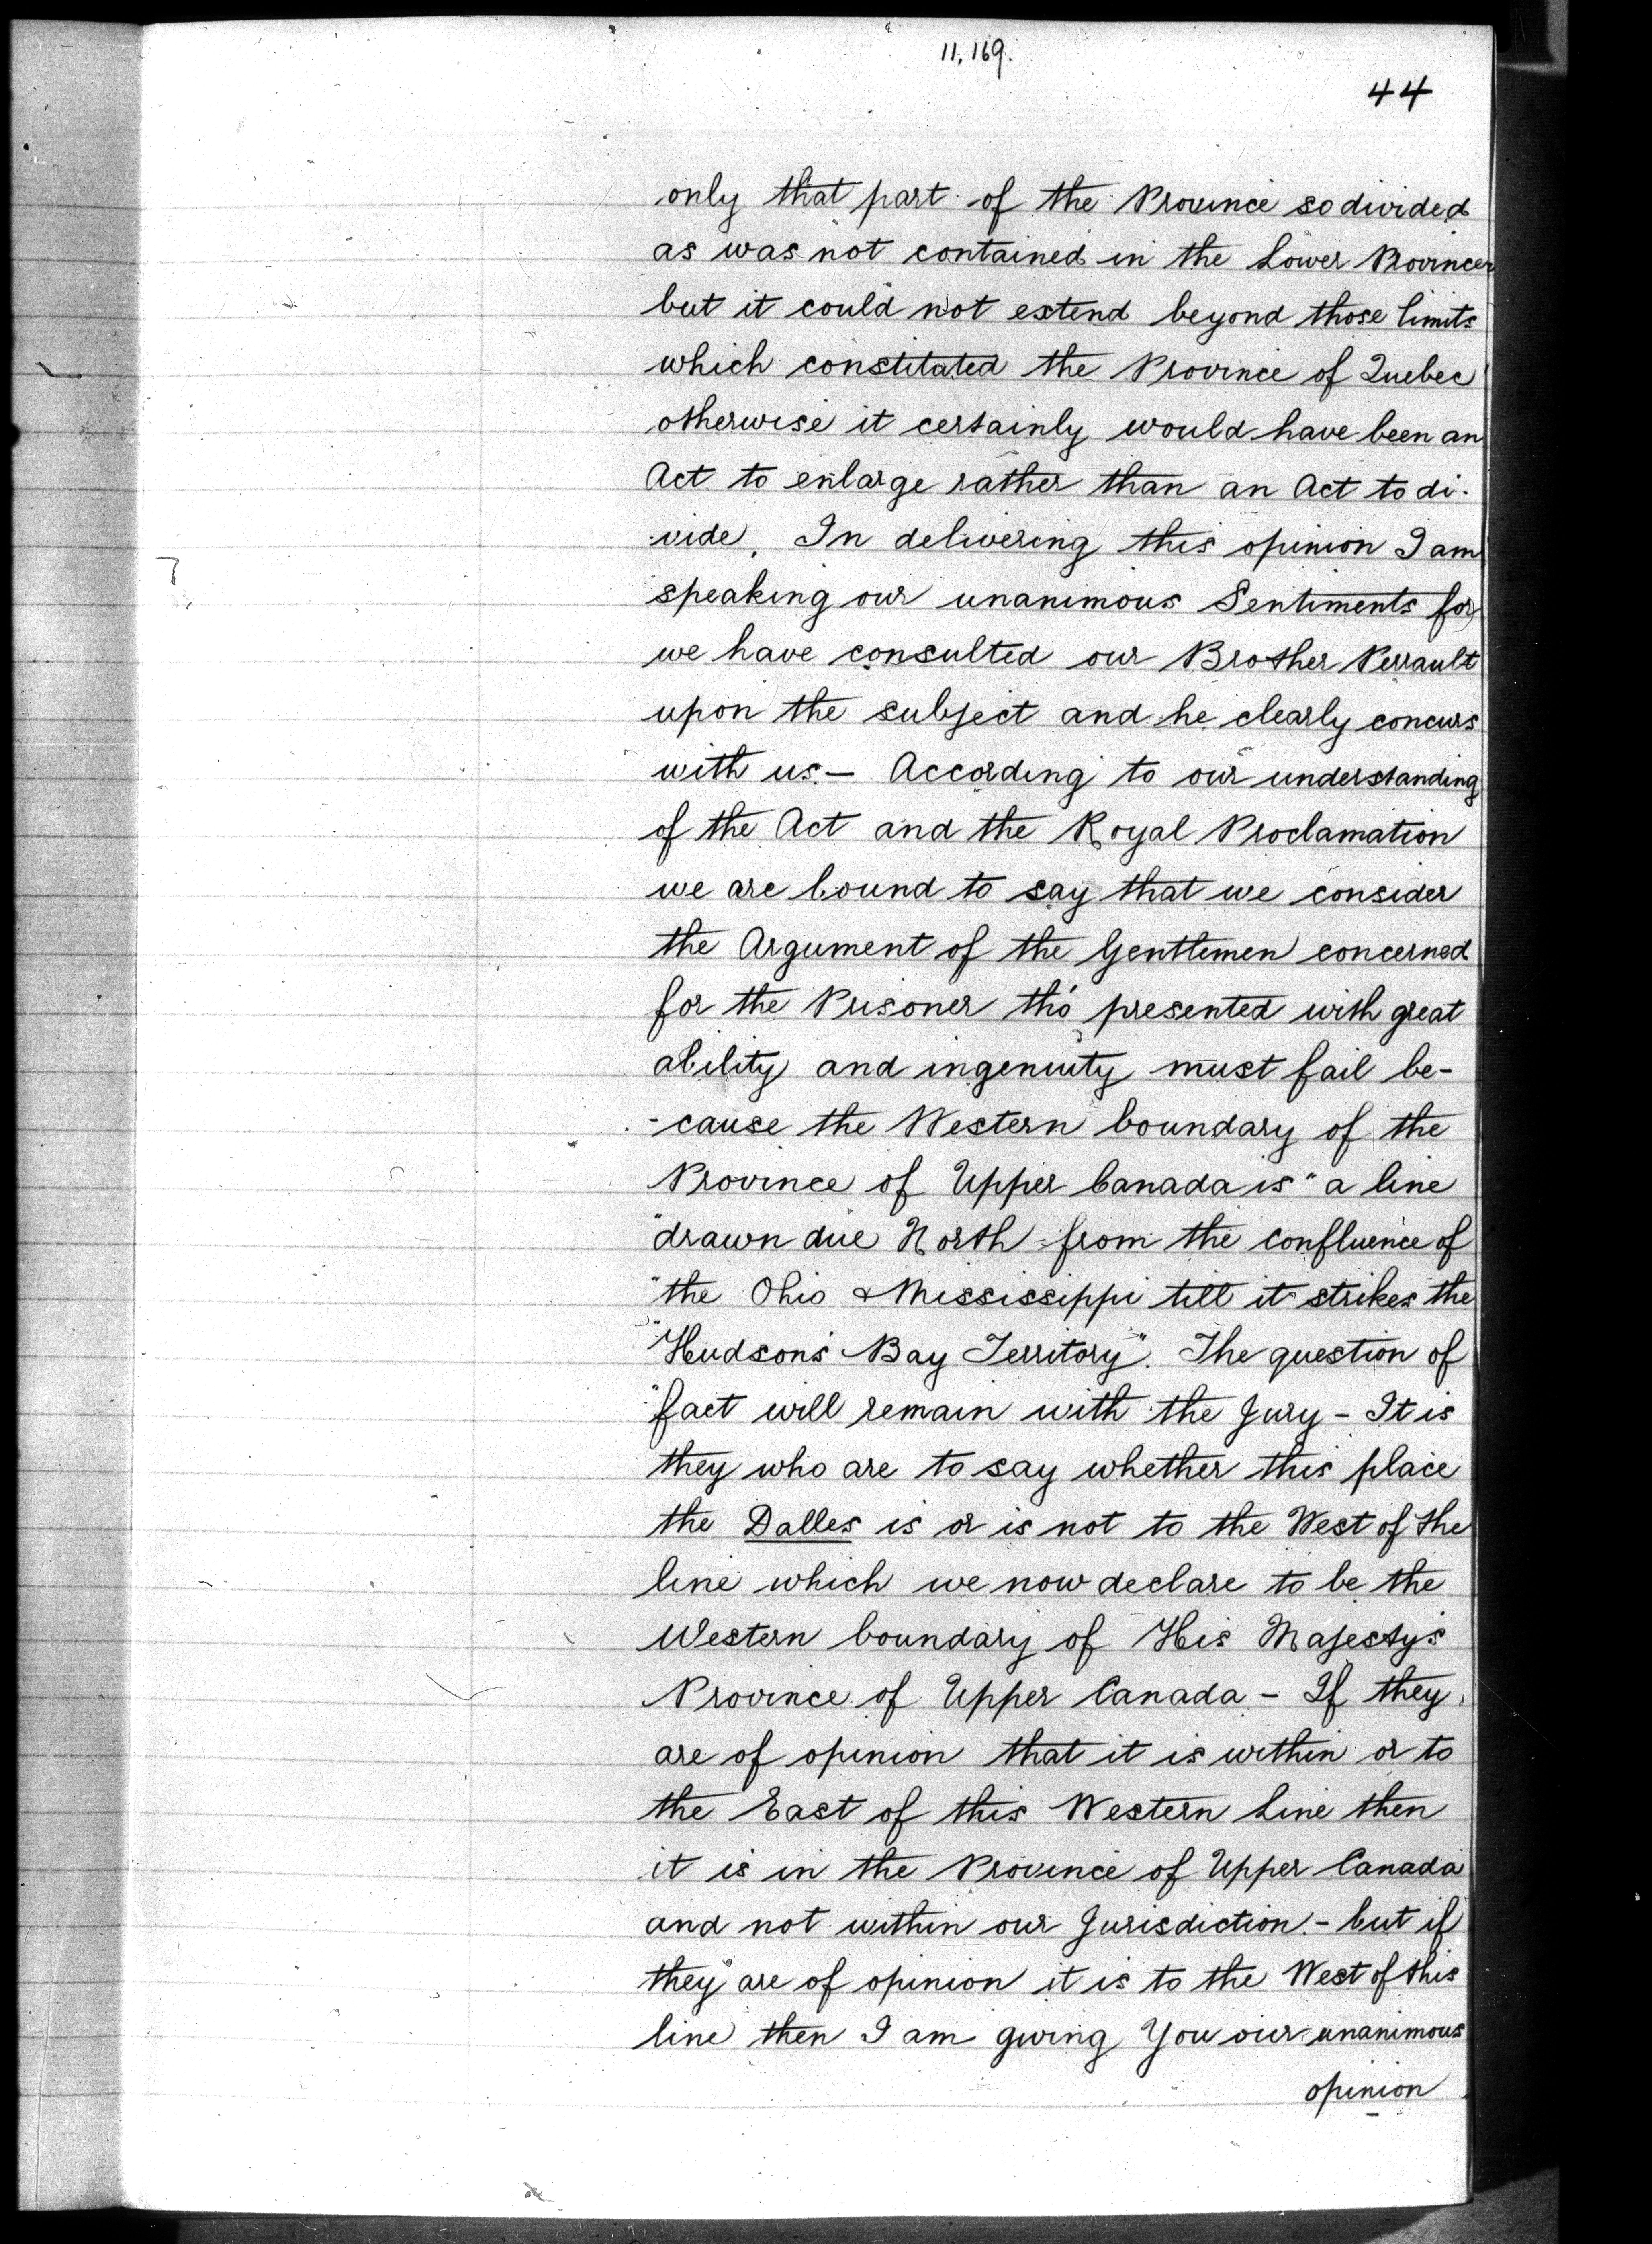 11,169.
44
only that part of the Province so divided
as was not contained in the Lower Province
but it could not extend beyond those limits
which constituted the Province of Quebec
otherwise it certainly would have been an
Act to enlarge rather than an Act to di-
-vide. In delivering this opinion I am
speaking our unanimous Sentiments for
we have consulted our Brother Perrault
upon the subject and he clearly concurs
with us — According to our understanding
of the Act and the Royal Proclamation
we are bound to say that we consider
the Argument of the Gentlemen concerned
for the Prisoner tho' presented with great
ability and ingenuity must fail be-
-cause the Western boundary of the
Province of Upper Canada is "a line
"drawn due North from the confluence of
"the Ohio & Mississippi till it strikes the
"Hudson's Bay Territory". The question of
"fact will remain with the Jury - It is
they who are to say whether this place
the Dalles is or is not to the West of the
line which we now declare to be the
Western boundary of His Majesty's
Province of Upper Canada - If they
are of opinion that it is within or to
the East of this Western Line then
it is in the Province of Upper Canada
and not within our Jurisdiction - but if
they are of opinion it is to the West of this
line then I am giving You our unanimous
opinion